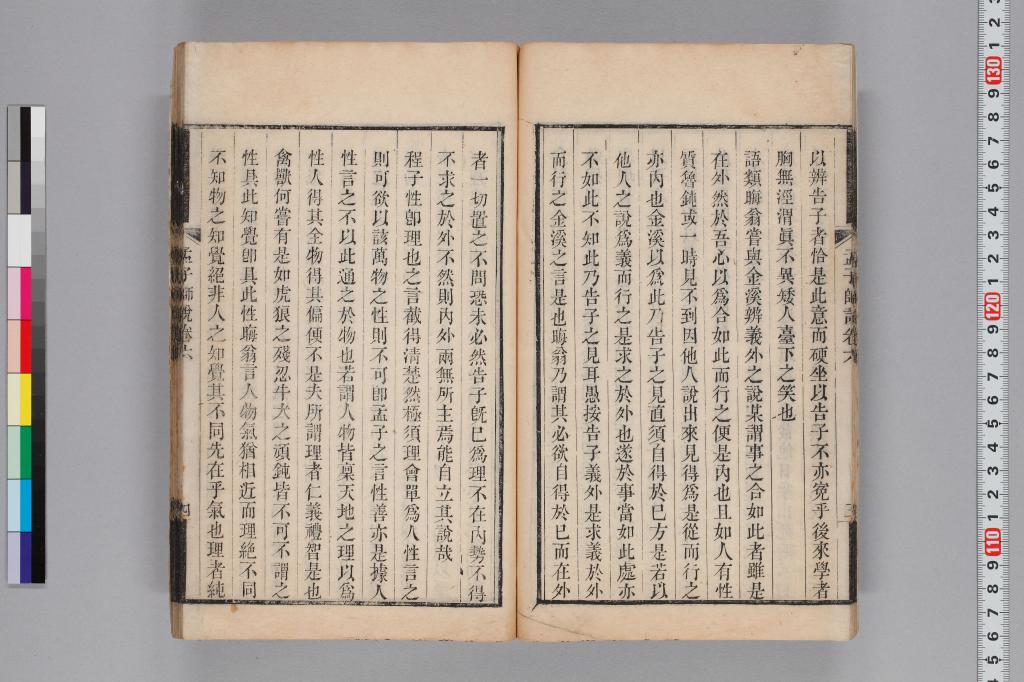 以辨告子者恰是此意而硬坐以告子不亦寃乎後來學者
胸無涇渭眞不異矮人臺下之笑也
語類晦翁嘗與金溪辨義外之說某謂事之合如此者雖是
在外然於吾心以爲合如此而行之便是內也且如人有性
質魯鈍或一時見不到因他人說出來見得爲是從而行之
亦內也金溪以爲此乃告子之見直須自得於已方是若以
他人之說爲義而行之是求之於外也遂於事當如此處亦
不如此不知此乃告子之見耳愚按告子義外是求義於外
而行之金溪之言是也晦翁乃謂其必欲自得於已而在外
孟子師說卷六
三
者一切置之不問恐未必然告子旣已爲理不在內勢不得
不求之於外不然則內外兩無所主焉能自立其說哉
程子性卽理也之言截得清楚然極須理會單爲人性言之
則可欲以該萬物之性則不可卽孟子之言性善亦是據人
性言之不以此通之於物也若謂人物皆稟天地之理以爲
性人得其全物得其偏便不是夫所謂理者仁義禮智是也
禽獸何嘗有是如虎狼之殘忍牛犬之頑鈍皆不可不謂之
性具此知覺卽具此性晦翁言人物氣猶相近而理絕不同
不知物之知覺絕非人之知覺其不同先在乎氣也理者純
孟子師說卷六
四
130
120
110